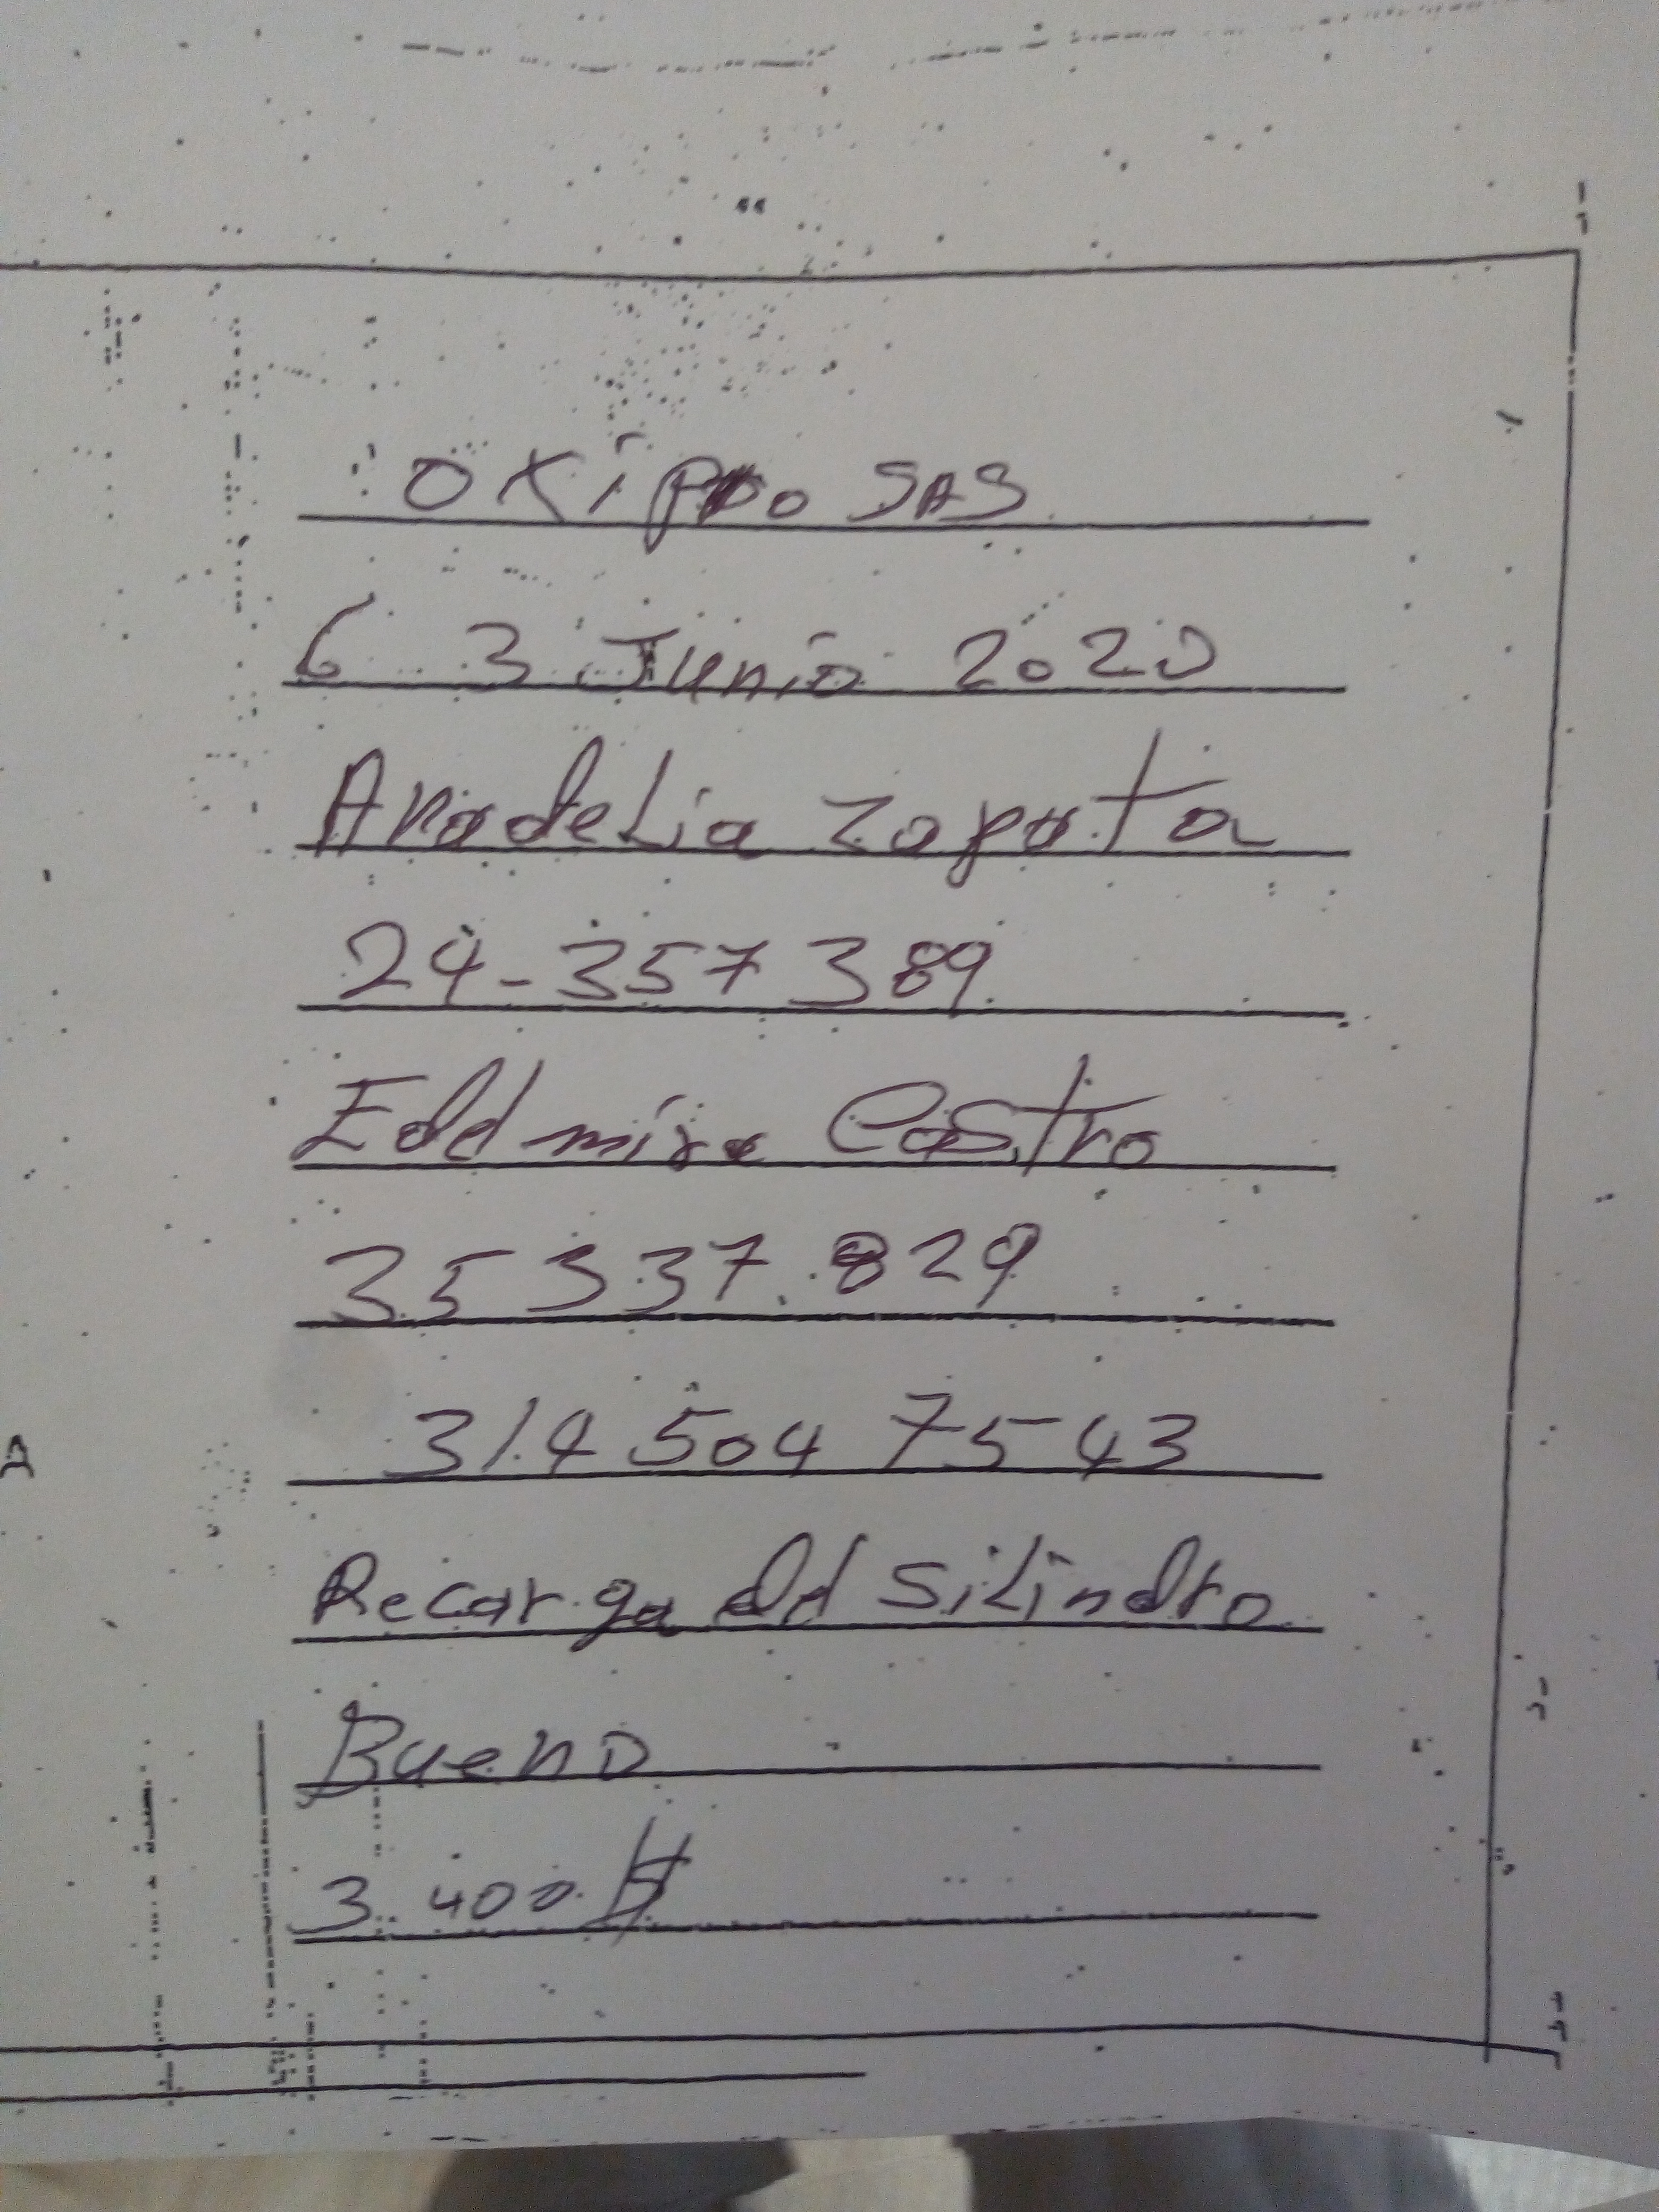 OXIPRO SAS
6 3 Junio 2020
Anadelia Zapata
24-357389
Edelmira Castro
35337.829
314 504 7543
Recarga del Silindro
Bueno
3.400 $
A